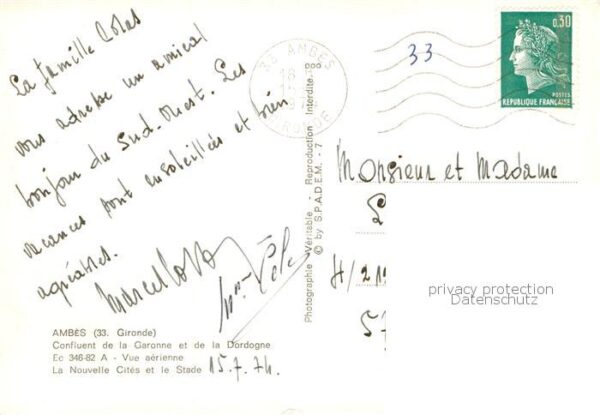 La famille Colas
vous adresse un amical
bonjour du Sud-Ouest. Les
vacances sont ensoleillées et bien
agréables.
Marcel
Mme
AMBÈS (33. Gironde)
Confluent de la Garonne et de la Dordogne
Ec 346-82 A - Vue aérienne
La Nouvelle Cités et le Stade
15.7.74.
Photographie Véritable - Reproduction Interdite
© by S.P.A.D.E.M. - 7
33 AMBES
GIRONDE
33
0,30
POSTES
REPUBLIQUE FRANÇAISE
Monsieur et Madame
H/21
57
privacy protection
Datenschutz